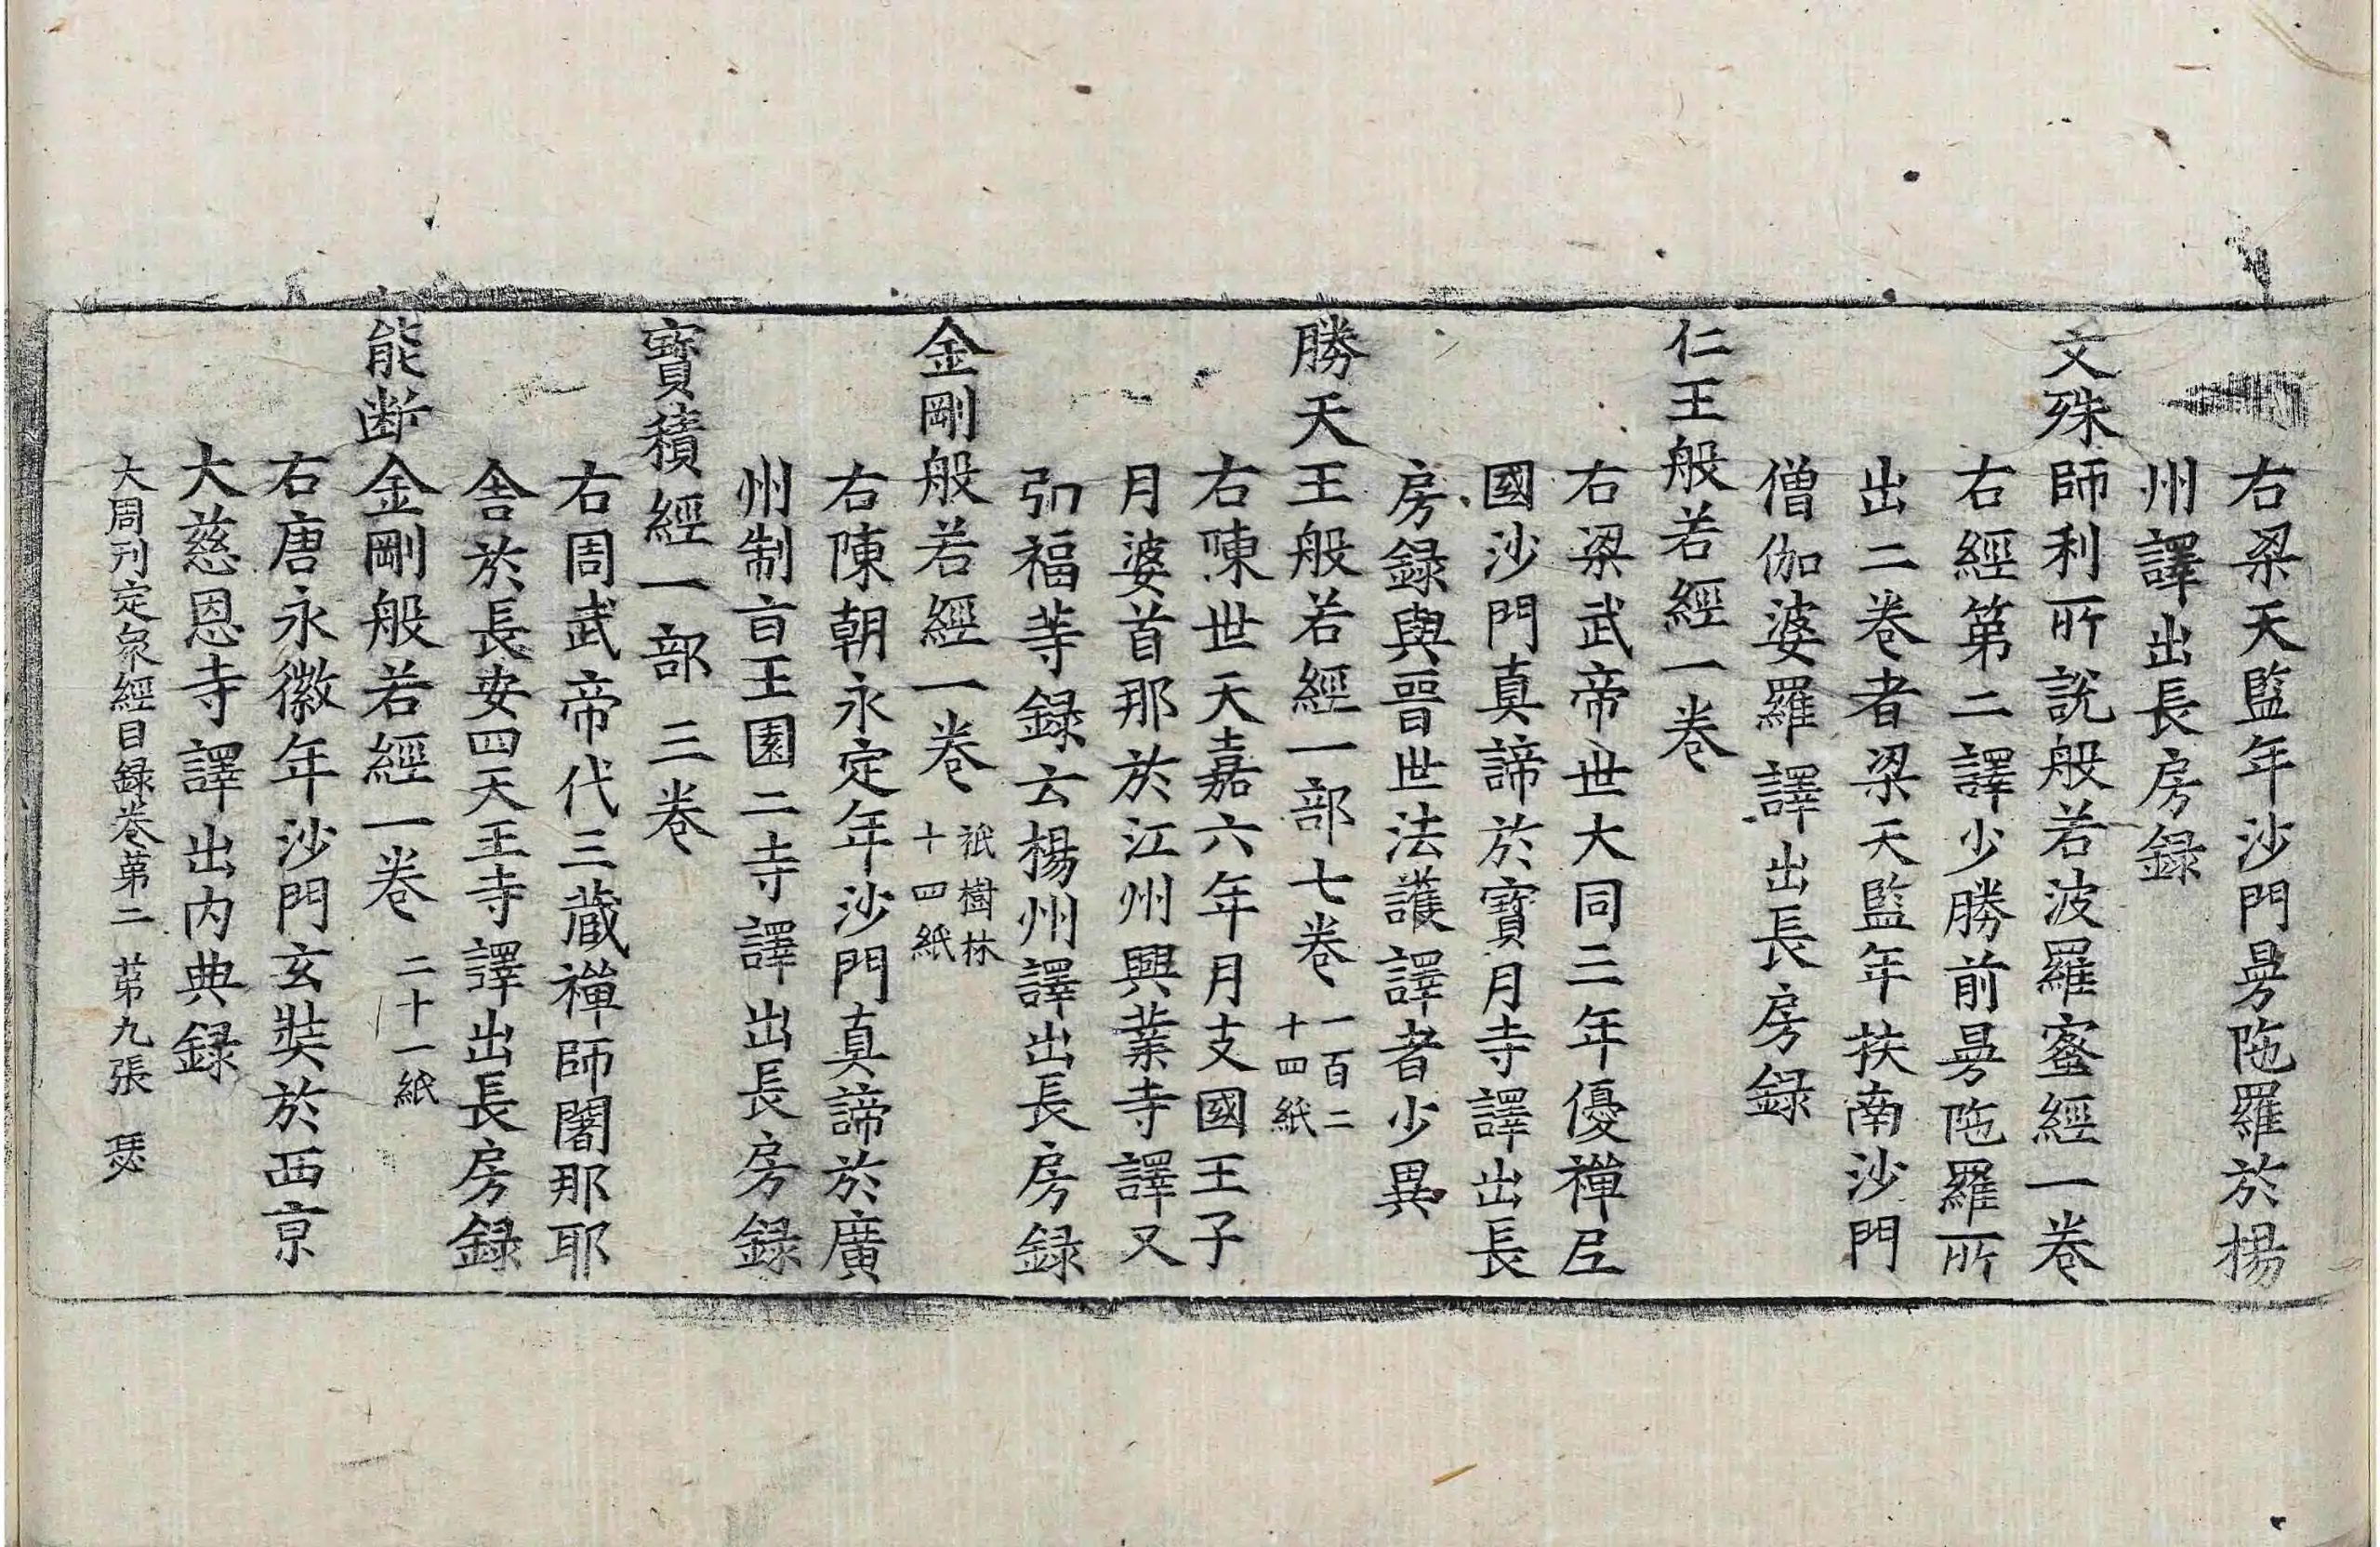 右梁天監年沙門曼陁羅於楊
州譯出長房録
文殊師利所説般若波羅蜜經一卷
右經第二譯少勝前曼陁羅所
出二卷者梁天監年扶南沙門
僧伽婆羅譯出長房録
仁王般若經一卷
右梁武帝世大同三年優禪尼
國沙門真諦於寶月寺譯出長
房録與晉世法護譯者少異
勝天王般若經一部七卷 一百二十四紙
右陳世天嘉六年月支國王子
月婆首那於江州興業寺譯又
弘福寺録云楊州譯出長房録
金剛般若經一卷 祇樹林十四紙
右陳朝永定年沙門真諦於廣
州制旨王園二寺譯出長房録
寶積經一部 三卷
右周武帝代三藏禪師闍那耶
舎於長安四天王寺譯出長房録
能断金剛般若經一卷 二十一紙
右唐永徽年沙門玄奘於西京
大慈恩寺譯出内典録
大周刊定衆經目録卷第二 第九張 瑟